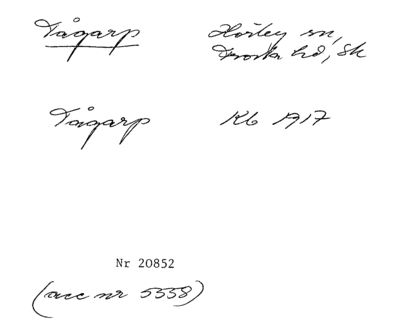 Tågarp Hörby sn,
Frosta hd, Sk
Tågarp Kb 1917
Nr 20852
(acc nr 5558)